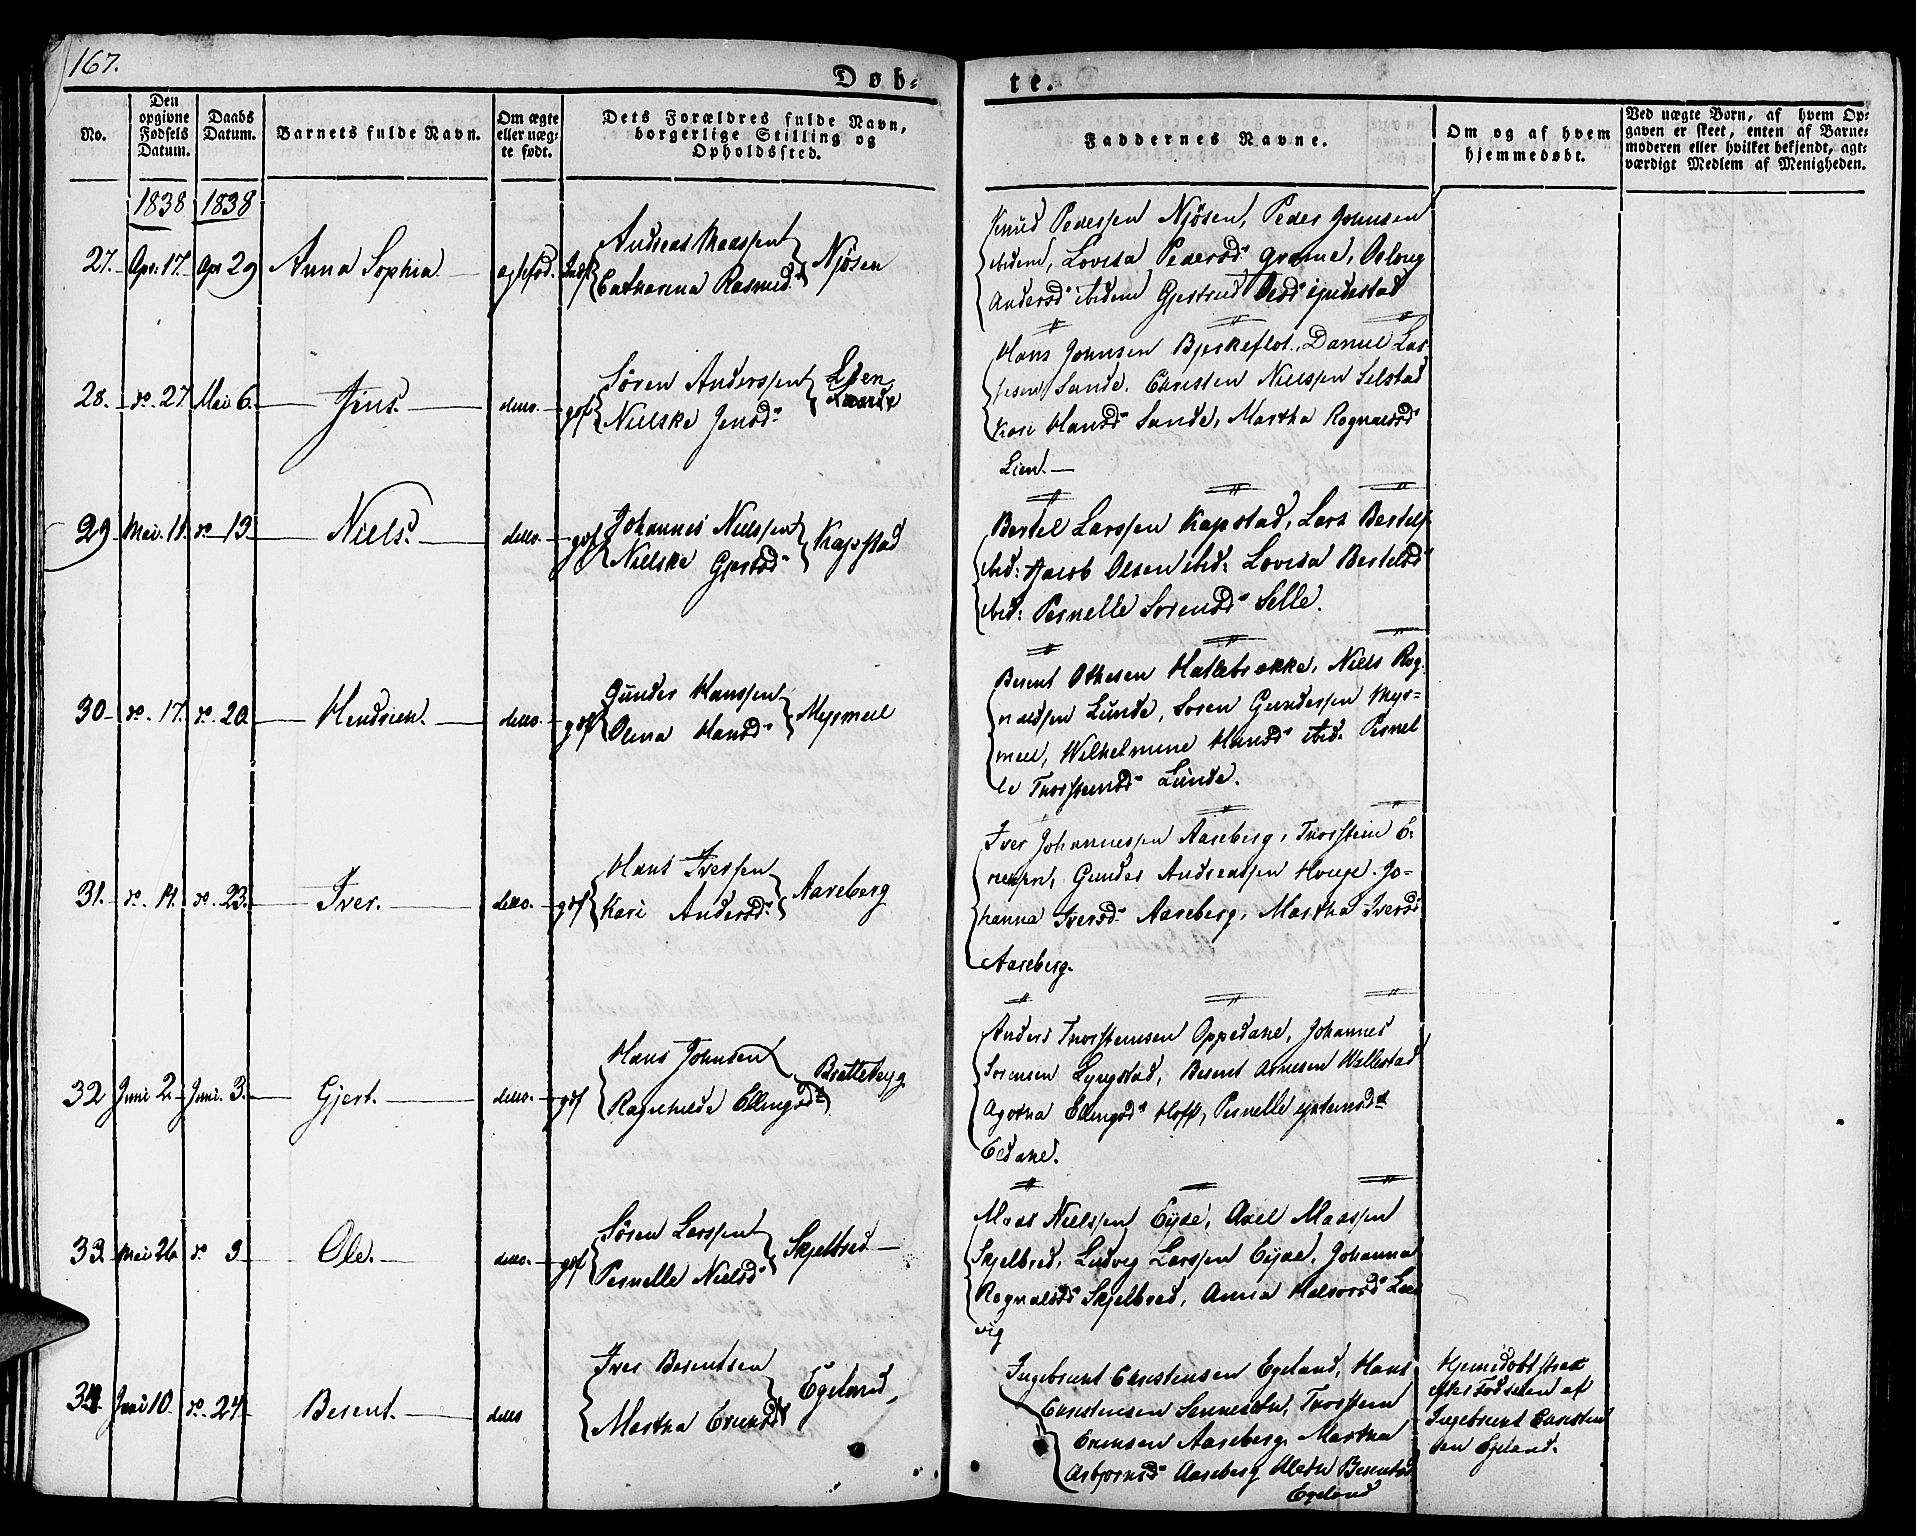 167.
Døb-
te.
No.
Den opgivne Fødsels Datum.
Daabs Datum.
Barnets fulde Navn.
Om ægte eller uægte født.
Dets Forældres fulde Navn, borgerlige Stilling og Opholdssted.
Faddernes Navne.
Om og af hvem hjemmedøbt.
Ved uægte Børn, af hvem Opgaven er skeet, enten af Barnemoderen eller hvilket bekjendt, agtværdigt Medlem af Menigheden.
1838 1838
27. Apr. 17. Apr 29 Anna Sophia
Andreas Madssen
Catharina Rasmusd. Njøsen
Knud Pederssen Njøsen, Peder Johnsen
ibidem, Lovisa Pedersd. Grane,
Andersd ibidem Gjertrud
28. do. 27 Mai 6. Jens. detto. gdf
Søren Anderssen
Nielske Jensd. Lien
Hans Johnsen Bjerkeflot. Daniel Lar-
sen Sande. Christen Nielssen Selstad
Kari Hansd Sande, Martha Rognaldsd
Lien.
29 Mai. 11. do 13. Niels. detto. gdf
Johannes Nielssen
Nielske Gjertsd. Kapstad
Bertel Larssen Kapstad, Lars Bertels.
ibid: Jacob Olsen ibid: Lovisa Bertelsd
ibid: Pernelle Sørensd. Selle.
30 do. 17. do. 20. Hendrich. detto. gdf
Gunder Hanssen
Olina Hansd. Myrmeel
Berent Othesen Hatlebrække, Niels Rog-
naldsen Lunde, Søren Gunderssen Myr-
meel, Wilhelmine Hansd ibid. Pernel
le Thorsteinsd. Lunde.
31. do. 14. do. 23. Iver. detto. gdf
Hans Iverssen
Kari Andersd. Aareberg
Iver Johannessen Aareberg, Thorstein E-
Gunder Andreassen Houge. Jo-
hanna Iversd. Aareberg, Martha Iversd
Aareberg.
32 Juni 2. Juni. 3. Gjert. detto. gdf
Hans Johnsen
Ragnhilde Ellingsd. Brættebyg
Anders Thorsteinsen Oppedahl, Johannes
Sørensen Lyngstad, Berent Arnesen Wallestad
Agotha Ellingsd. Hoff, Pernelle
Eldahl.
33. Mai 26. do 3. Ole. detto. gdf
Søren Larssen
Pernelle Nielsd. Skjelbred
Mads Nielssen Eyde, Axel Madssen
Skjelbred, Ludvig Larssen Eyde, Johanna
Rognaldsd. Skjelbred, Anna Halvorsd Lee
vig
34. Juni 10. do. 24. Berent. detto
Iver Berentsen
Martha Erensd. Egeland,
Ingebrigt Christensen Egeland, Hans
Christensen Thorstein
Erensen Aareberg. Martha
Asbjørnsd. Aareberg Berentsd
Egeland
Hjemedøbt strax
efter Fødselen af
Ingebrigt Christen
sen Egeland.